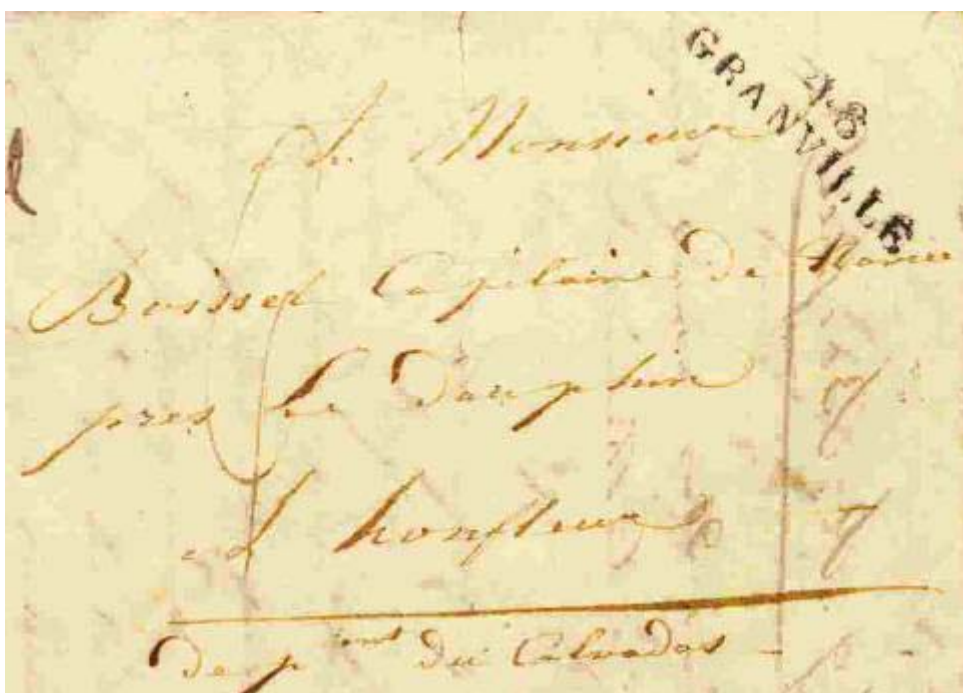 48
GRANVILLE
A Monsieur
Boissel Capitaine de Navire
pres le Dauphin
a honfleur
Dep.ment du Calvados